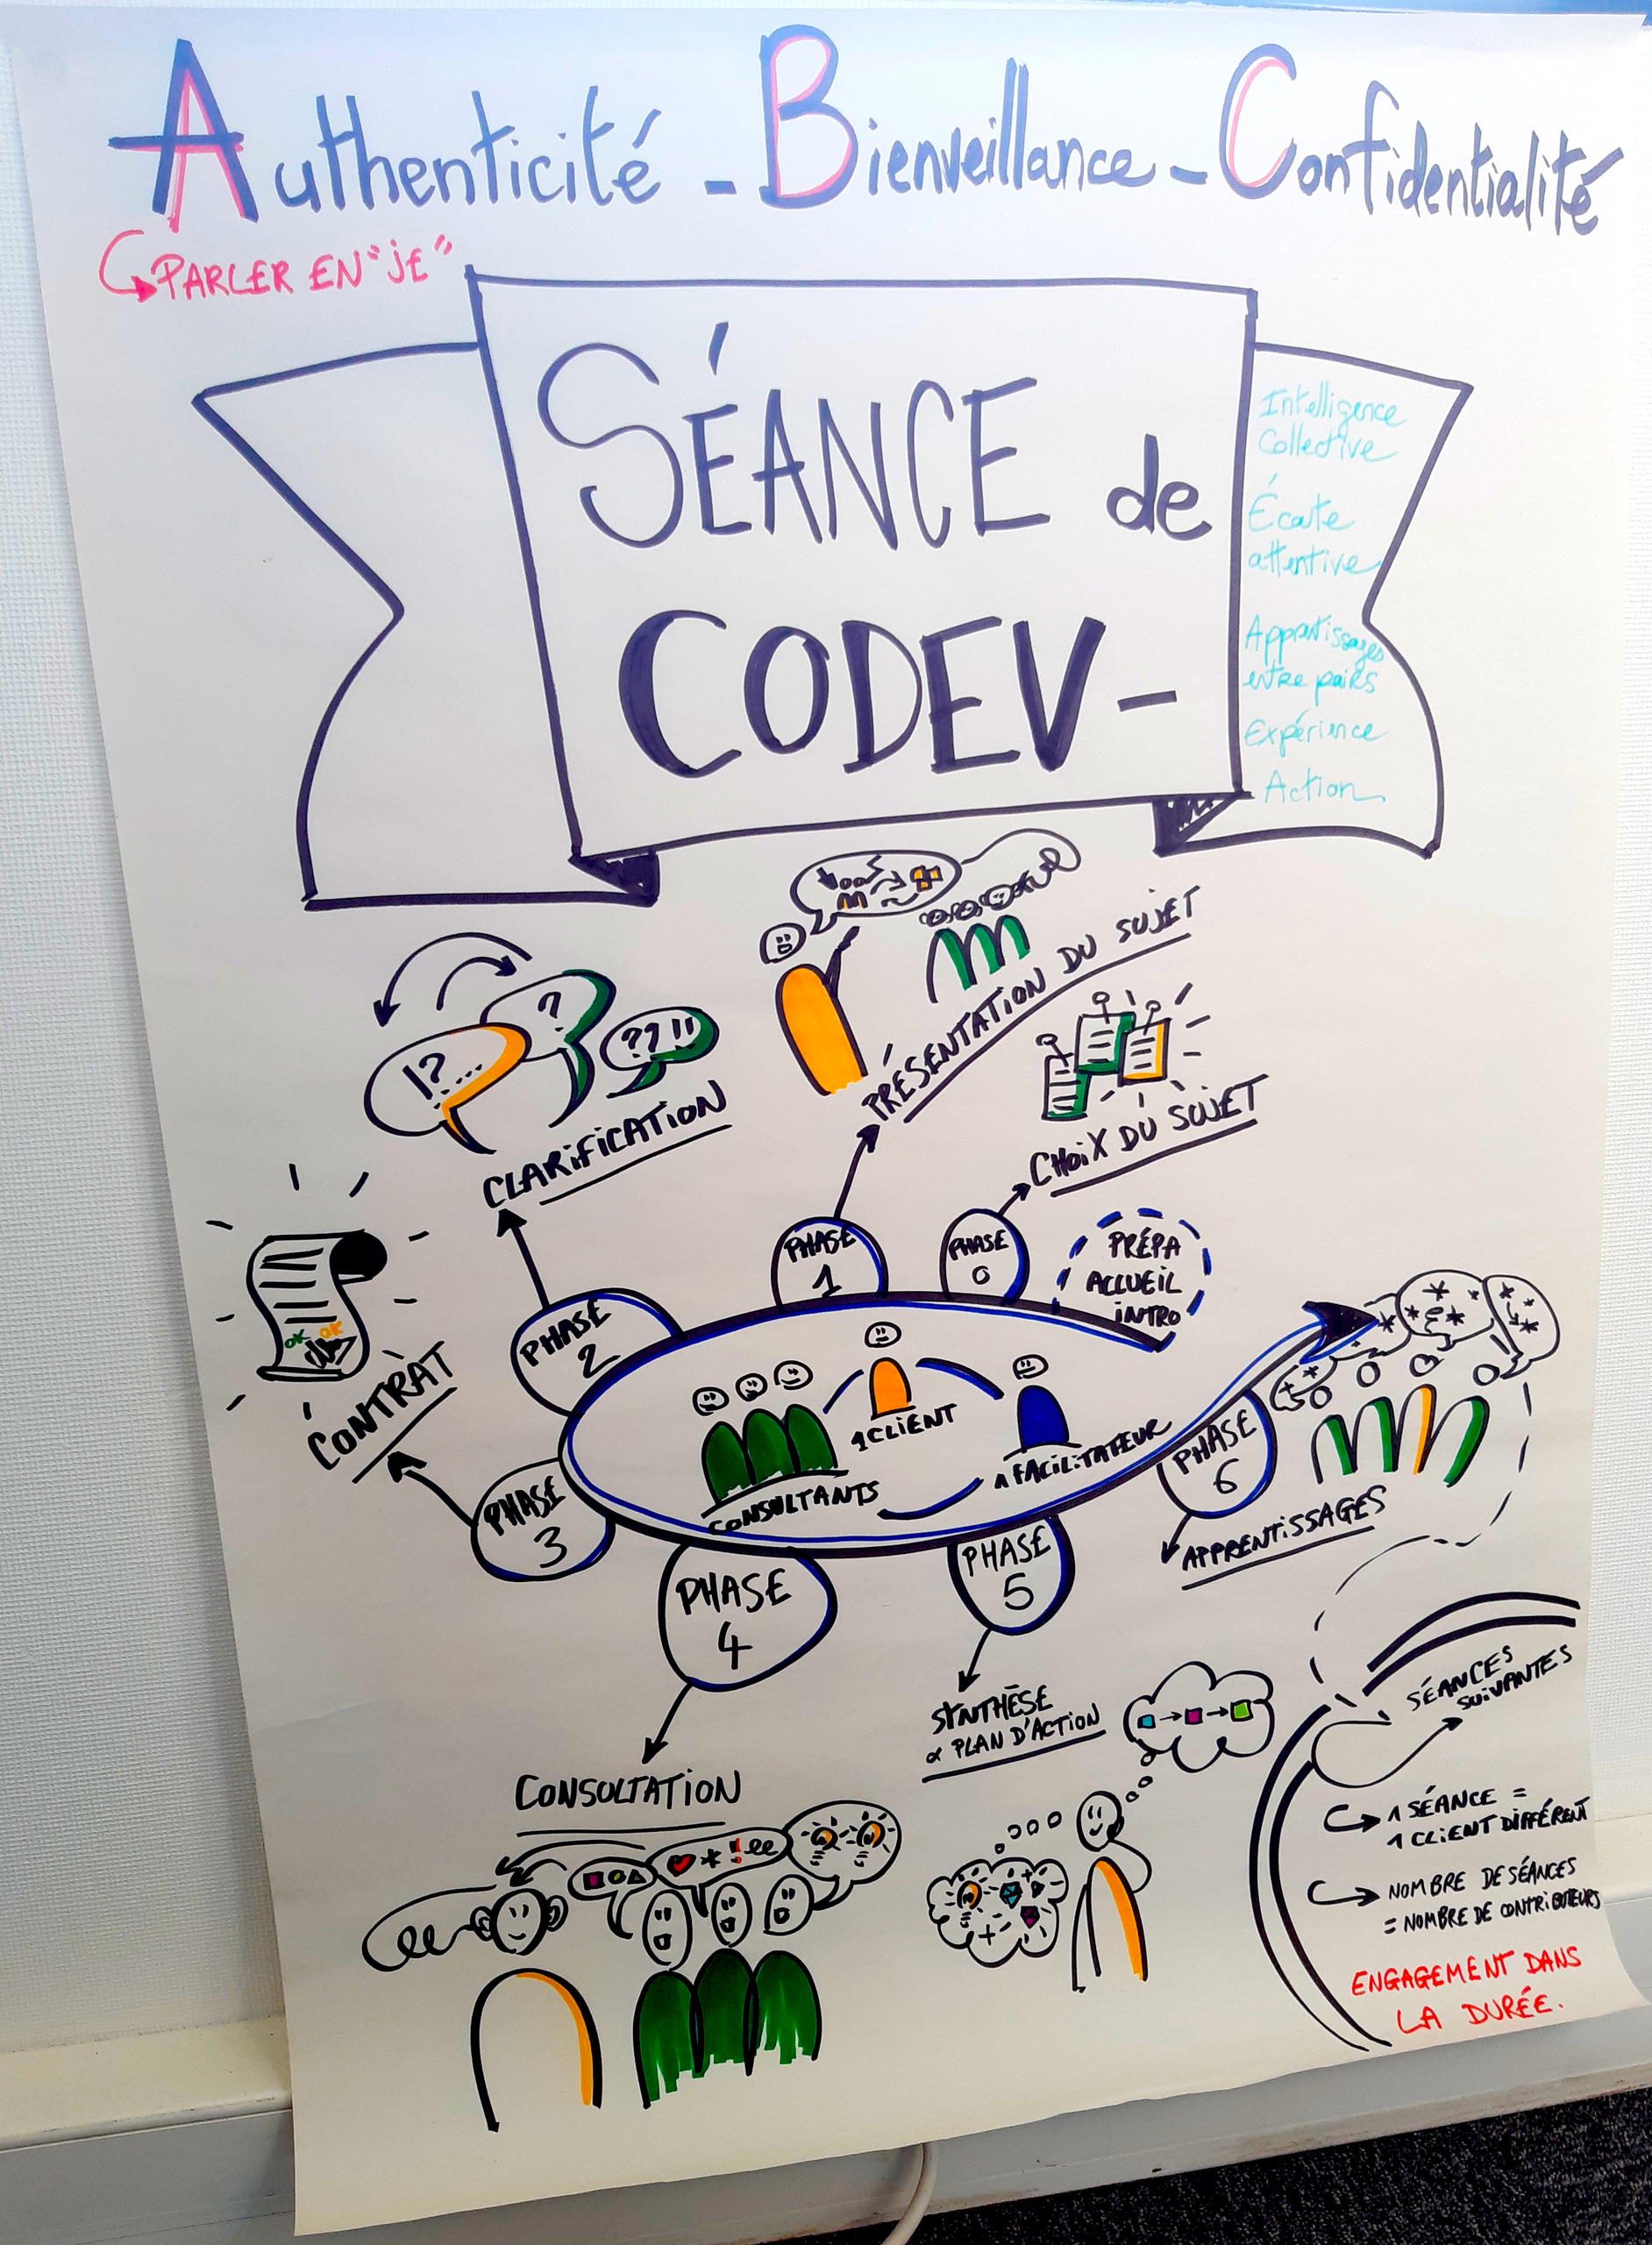 Authenticité - Bienveillance - Confidentialité
PARLER EN "JE"
SÉANCE de
CODEV-
Intelligence
Collective
Écoute
attentive
Apprentissages
entre pairs
Expérience
Action
PRÉSENTATION DU SUJET
CHOIX DU SUJET
!?....
?
??!!
CLARIFICATION
PHASE
1
PHASE
0
PRÉPA
ACCUEIL
INTRO
PHASE
2
OK OK
CONTRAT
1 CLIENT
1 FACILITATEUR
CONSULTANTS
PHASE
3
PHASE
6
APPRENTISSAGES
PHASE
4
PHASE
5
SYNTHÈSE
& PLAN D'ACTION
CONSULTATION
SÉANCES
SUIVANTES
1 SÉANCE =
1 CLIENT DIFFÉRENT
NOMBRE DE SÉANCES
= NOMBRE DE CONTRIBUTEURS
ENGAGEMENT DANS
LA DURÉE.